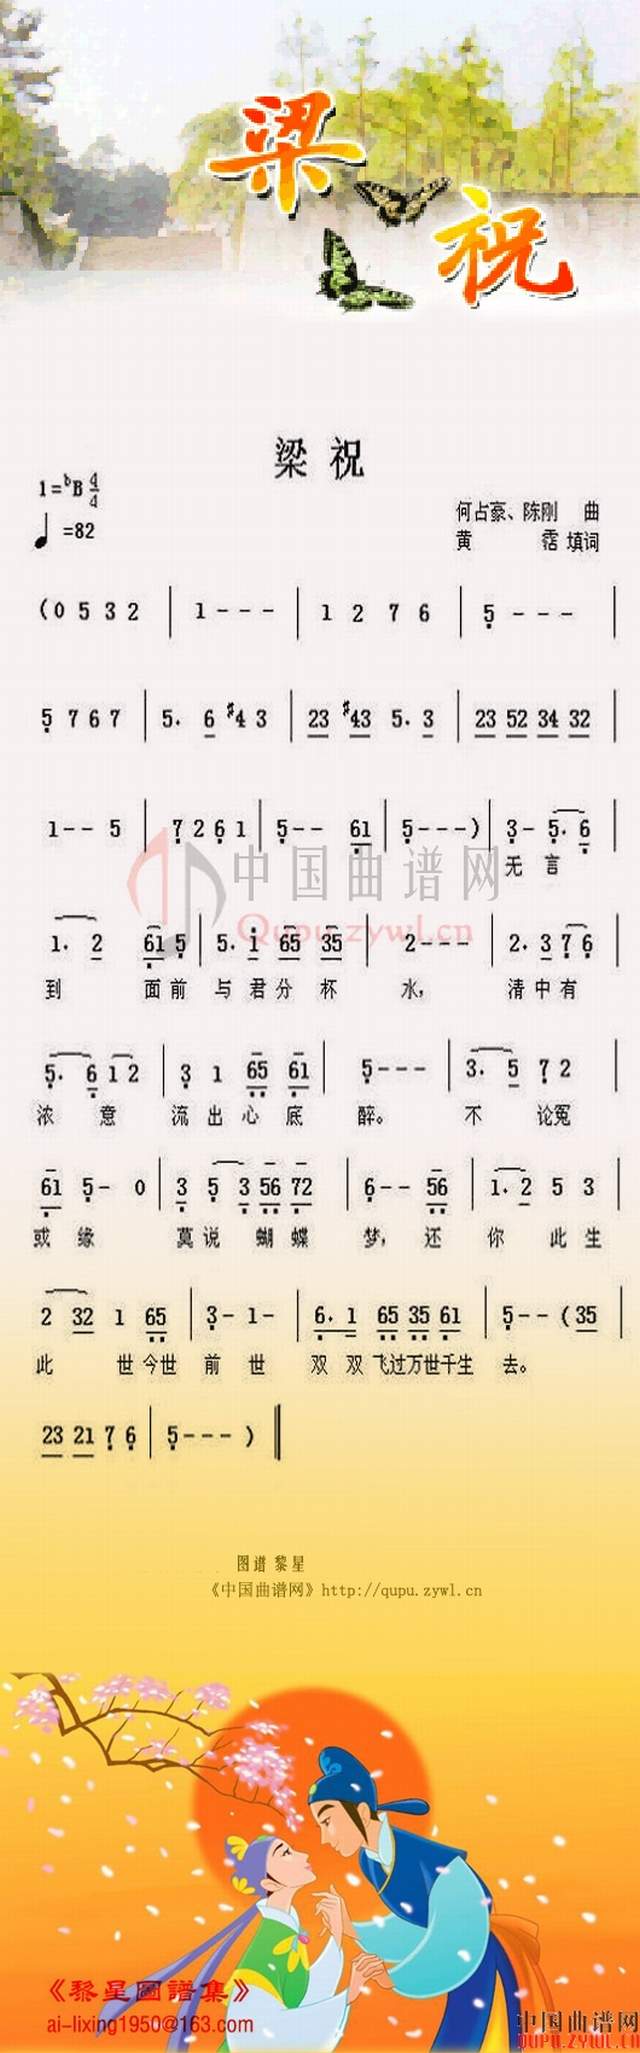 梁祝
梁 祝
1=ᵇB 4/4
何占豪、陈刚 曲
♩=82
黄 霑 填词
(0 5 3 2 | 1 - - - | 1 2 7 6 | 5 - - - |
5 7 6 7 | 5. 6 #4 3 | 23 #43 5. 3 | 23 52 34 32 |
1 - - 5 | 7 2 6 1 | 5 - - 61 | 5 - - - ) | 3 - 5. 6 |
无 言
中国曲谱网
Qupu.zywl.cn
1. 2 61 5 | 5. i 65 35 | 2 - - - | 2. 3 7 6 |
到 面前 与君分 杯 水, 清中有
5. 6 1 2 | 3 1 65 61 | 5 - - - | 3. 5 7 2 |
浓 意 流 出 心 底 醉。 不 论冤
61 5 - 0 | 3 5 3 56 72 | 6 - - 56 | 1. 2 5 3 |
或 缘 莫说 蝴蝶 梦, 还 你 此 生
2 32 1 65 | 3 - 1 - | 6. 1 65 35 61 | 5 - - (35 |
此 世今世 前 世 双 双 飞过万世千生 去。
23 21 7 6 | 5 - - - ) ‖
图谱 黎星
《中国曲谱网》http://qupu.zywl.cn
《黎星圖譜集》
ai-lixing1950@163.com
中国曲谱网
QUPU.ZYWL.CN